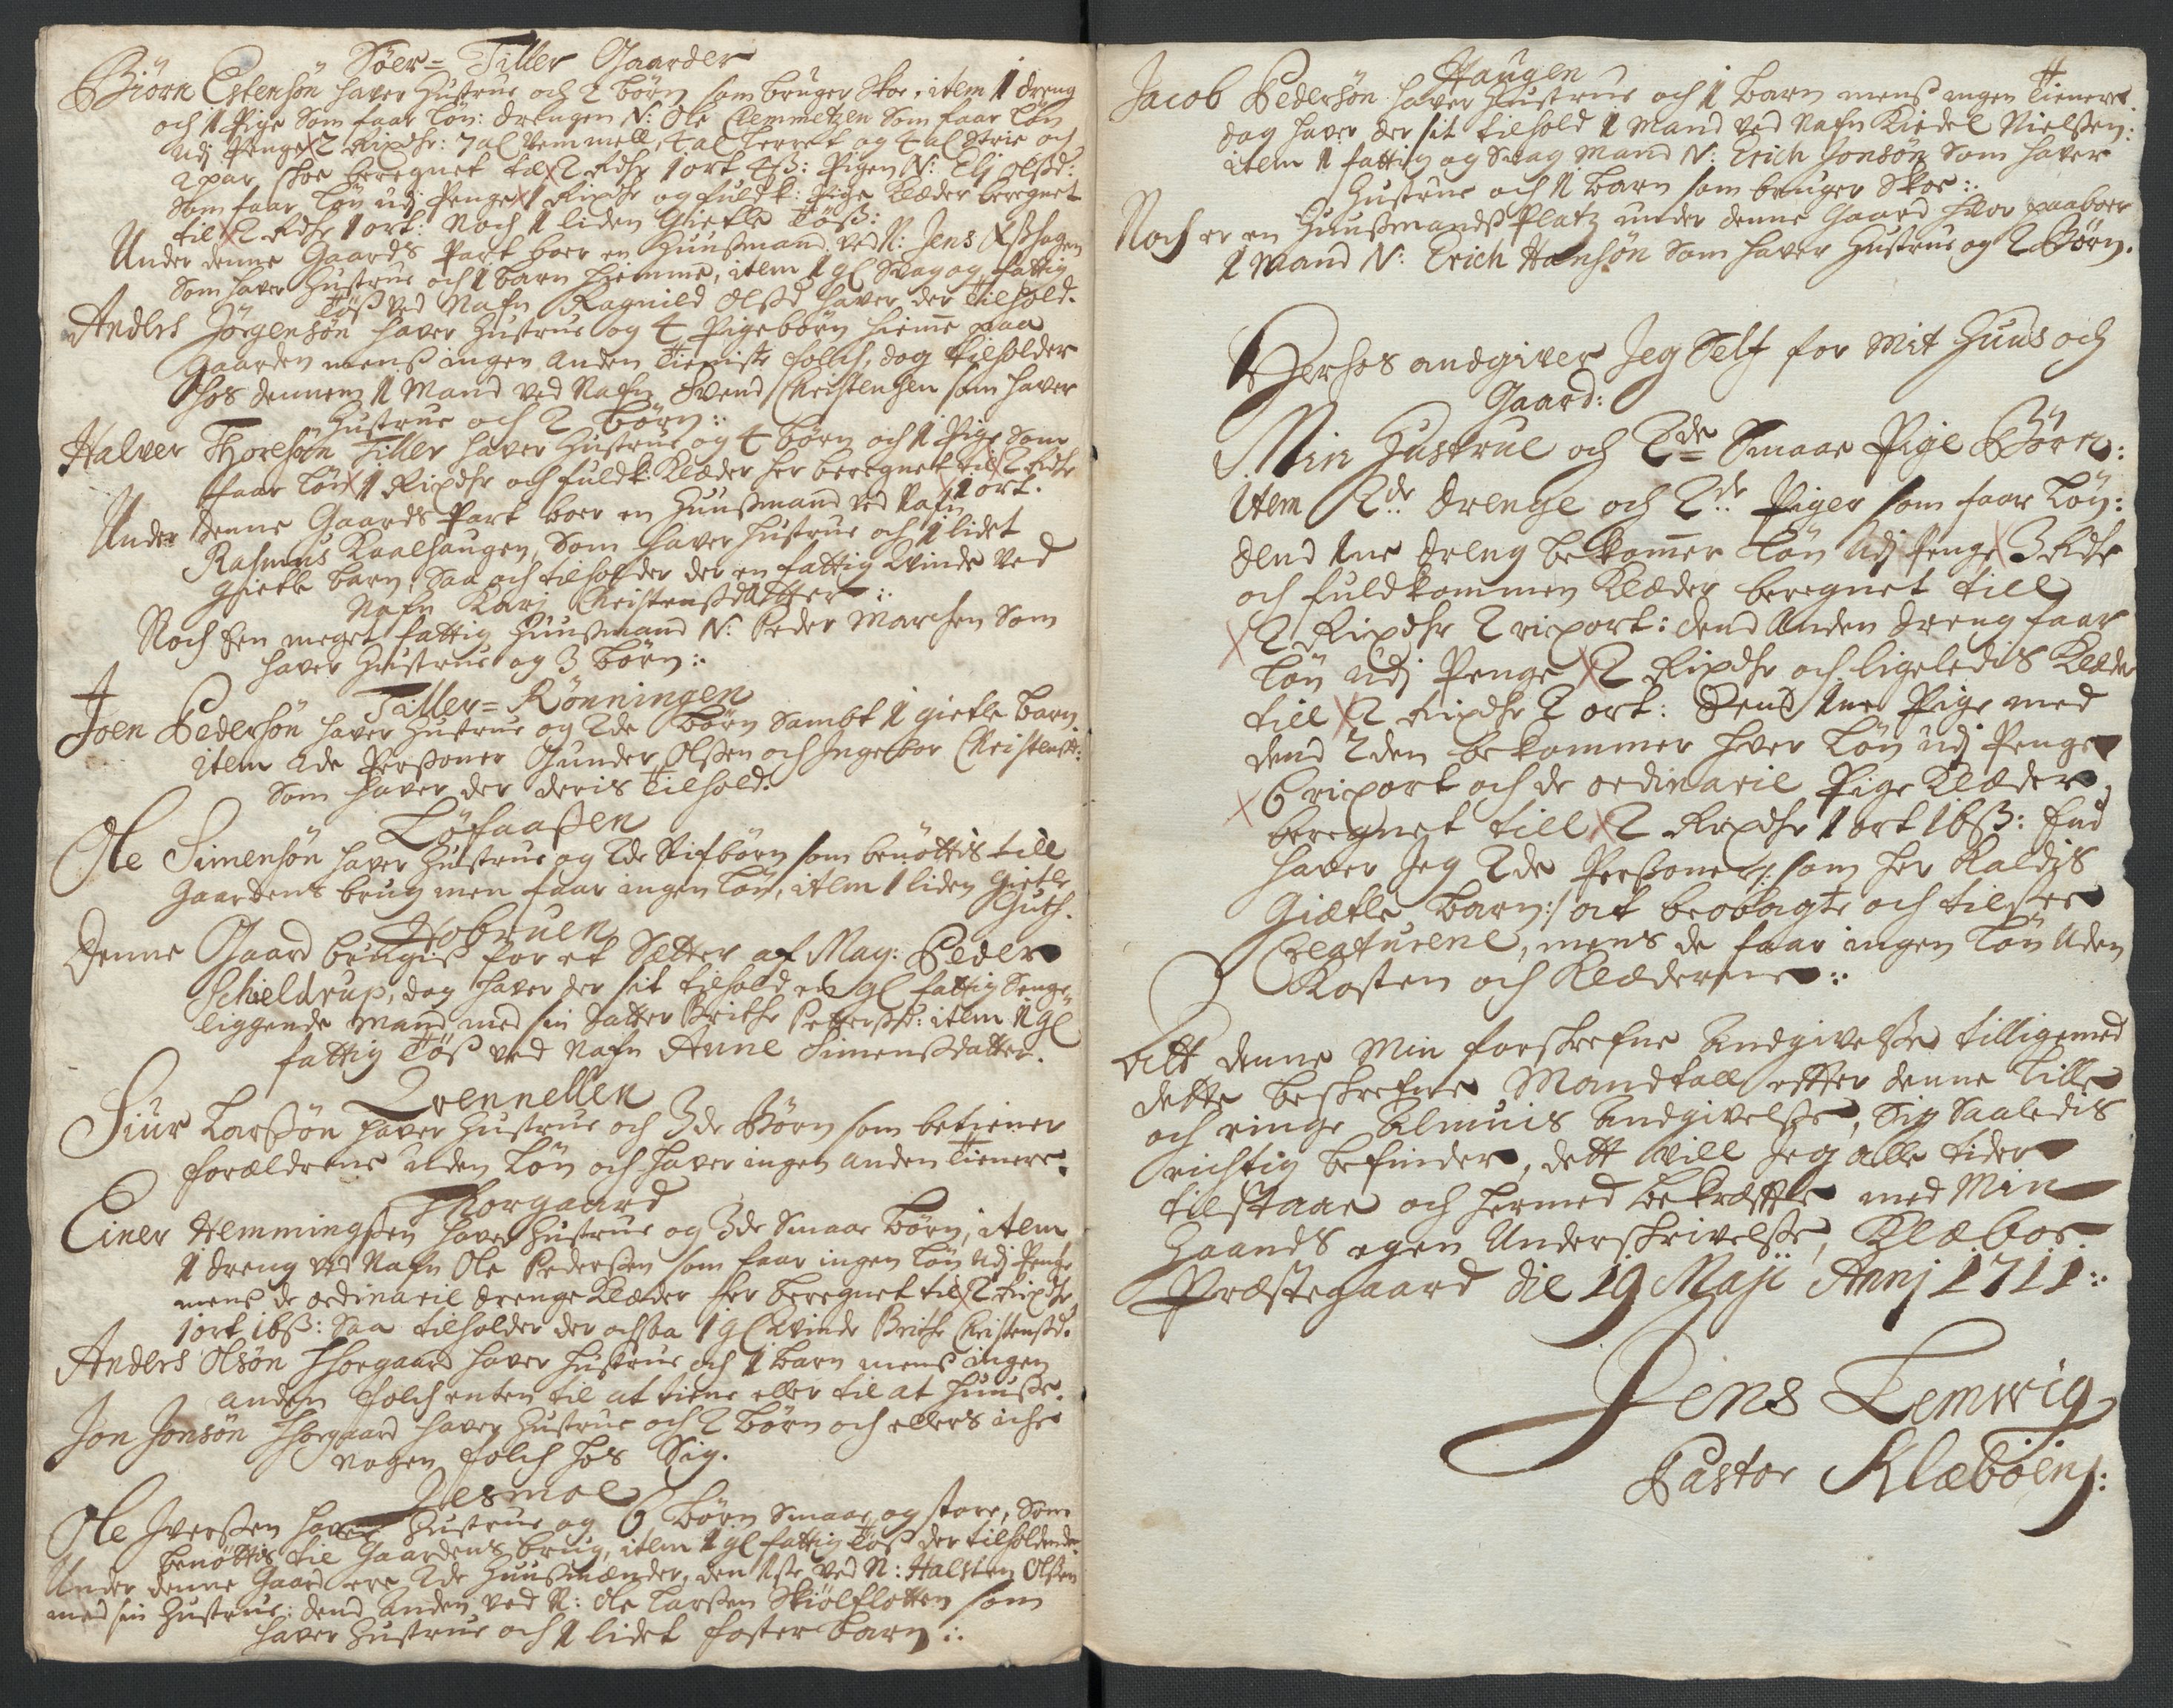 Søer= Tiller Gaarder
Biørn Estensøn haver Hustrue och 2 børn som bruger Skoe, item 1 dreng
och 1 Pige som faar Løn: drengen N: Ole Clemmetzen som faar Løn
udj Penge 2 Rixdhr: 7 al Vammell, 4 al Lerret og 4 al Strie och
2 par skoe beregnet til 2 Rdhr 1 ort 4 ß: Pigen N: Elj Olßd:
som faar Løn udj Penge 1 Rixdhr og fuldk: Pige Klæder beregnet
til 2 Rdhr 1 ort: Noch 1 liden Gietle Töß:
Under denne Gaards Part boer en Huusmand ved N: Jens
som haver Hustrue och 1 barn hiemme, item 1 gl Svag og fattig
Töß ved Nafn Ragnild Olßd haver der Tilhold.
Anders Jörgensøn haver Hustrue og 4 Pigebørn hieme paa
Gaarden menß ingen anden Tieniste Folch, dog tilholder
hos dennem 1 Mand ved Nafn Svend Christensen som haver
Hustrue och 2 børn:
Halver Thoresøn Tiller haver Hustrue og 4 børn och 1 Pige som
faar Løn 1 Rixdhr och fuldk: Klæder her beregnet til 2 Rdhr
1 ort.
Under denne Gaards Part boer en Huusmand ved Nafn
Rasmus Kaalhaugen, som haver Hustrue och 1 lidet
Gietle barn, Saa och tilholder der en fattig Kvinde ved
Nafn Karj Christensdatter:
Noch Een meget fattig Huusmand N: Peder Marchen som
haver Hustrue og 3 børn:
Tiller= Rønningen
Joen Pedersøn haver Hustrue og 2de Børn sambt 1 gietle barn
item 2de Persohner Gunder Olßen och Ingebor Christenst:
som haver der deris Tilhold.
Løfaaßen
Ole Simensøn haver Hustrue og 2de Stifbørn som benøttis till
Gaardens brug men faar ingen Løn, item 1 liden Gietle
Guth.
Hobruen
Denne Gaard brugis for et Sætter af Mag: Peder
Schieldrup, dog haver der sit tilhold en gl fattig Senge
liggende Mand med sin datter Brithe Petterßd: item 1 gl
fattig Töß ved Nafn Anne Simensdatter.
Qvennellen
Siur Larßøn haver Hustrue och 3de Børn som betiener
forældrene uden Løn och haver ingen anden Tienere.
Thorgaard
Einer Hemmingßen haver Hustrue og 3de Smaae Børn, item
1 dreng ved Nafn Ole Pederßen som faar ingen Løn udj Penge
mens de ordinarie drenge Klæder her beregnet til 2 Rixdhr
1 ort 16 ß: Saa tilholder der ochsaa 1 gl Kvinde Brithe Christensd.
Anders Olsøn Thorgaard haver Hustrue och 1 barn menß ingen
anden Folch enten til at tiene eller til at huuße.
Jon Jonsøn Thorgaard haver Hustrue och 2 børn och ellers iche
nogen Folch hos Sig.
Jesmoe
Ole Iverßen haver Hustrue og 6 børn Smaae og store, som
benøttis til Gaardens brug, item 1 gl fattig Töß der tilholdende
Under denne Gaard ere 2de Huusmænder, den 1ste ved N: Halsten Olßen
med sin Hustrue: dend anden ved N: Ole Larßen Skiølflotten som
haver Hustrue och 1 lidet foster barn:
Haugen
Jacob Pedersøn haver Hustrue och 1 barn menß ingen Tienere.
dog haver der sit tilhold 1 Mand ved Nafn Kiedel Nielßen:
item 1 fattig og Svag Mand N: Erich Jonsøn som haver
Hustrue och 1 barn som bruger Skoe:
Noch er en Huusmands Platz under denne Gaard hvor paaboer
1 Mand N: Erich Hansøn som haver Hustrue og 2 Børn.
Herhos andgiver Jeg Self for mit Huus och
Gaard:
Min Hustrue och 2de Smaae Pige Børn:
Item 2de drenge och 2de Piger som faar Løn:
dend 1ne dreng bekommer Løn udj Penge 3 Rdhr
och fuldkommen Klæder beregnet till
2 Rixdhr 2 rixort: dend anden dreng faar
Løn udj Penge 2 Rixdhr och ligeledis Klæder
till 2 Rixdhr 2 ort: Dend 1ne Pige med
dend 2den bekommer hver Løn udj Penge
6 rixort och de ordinarie Pige Klæder,
beregnet till 2 Rixdhr 1 ort 16 ß: End
haver Jeg 2de Persohner /: som her Kaldis
Giætle barn:/ at beobagte och tilsee
Creaturene, mens de faar ingen Løn uden
Kosten och Klæderne:
Att denne Min forskrefne Andgivelße tilligemed
dette beskrefne Mandtall effter denne Lille
och ringe Almuis Andgivelße, Sig Saaledis
richtig befinder, dett vill Jeg alle tider
tilstaae och hermed bekræffte med Min
Haands egen Underskrivelße, Klæboe
Præstegaard die 19 Maji Annj 1711:
Jens Lemwig
Pastor Klæbøens: